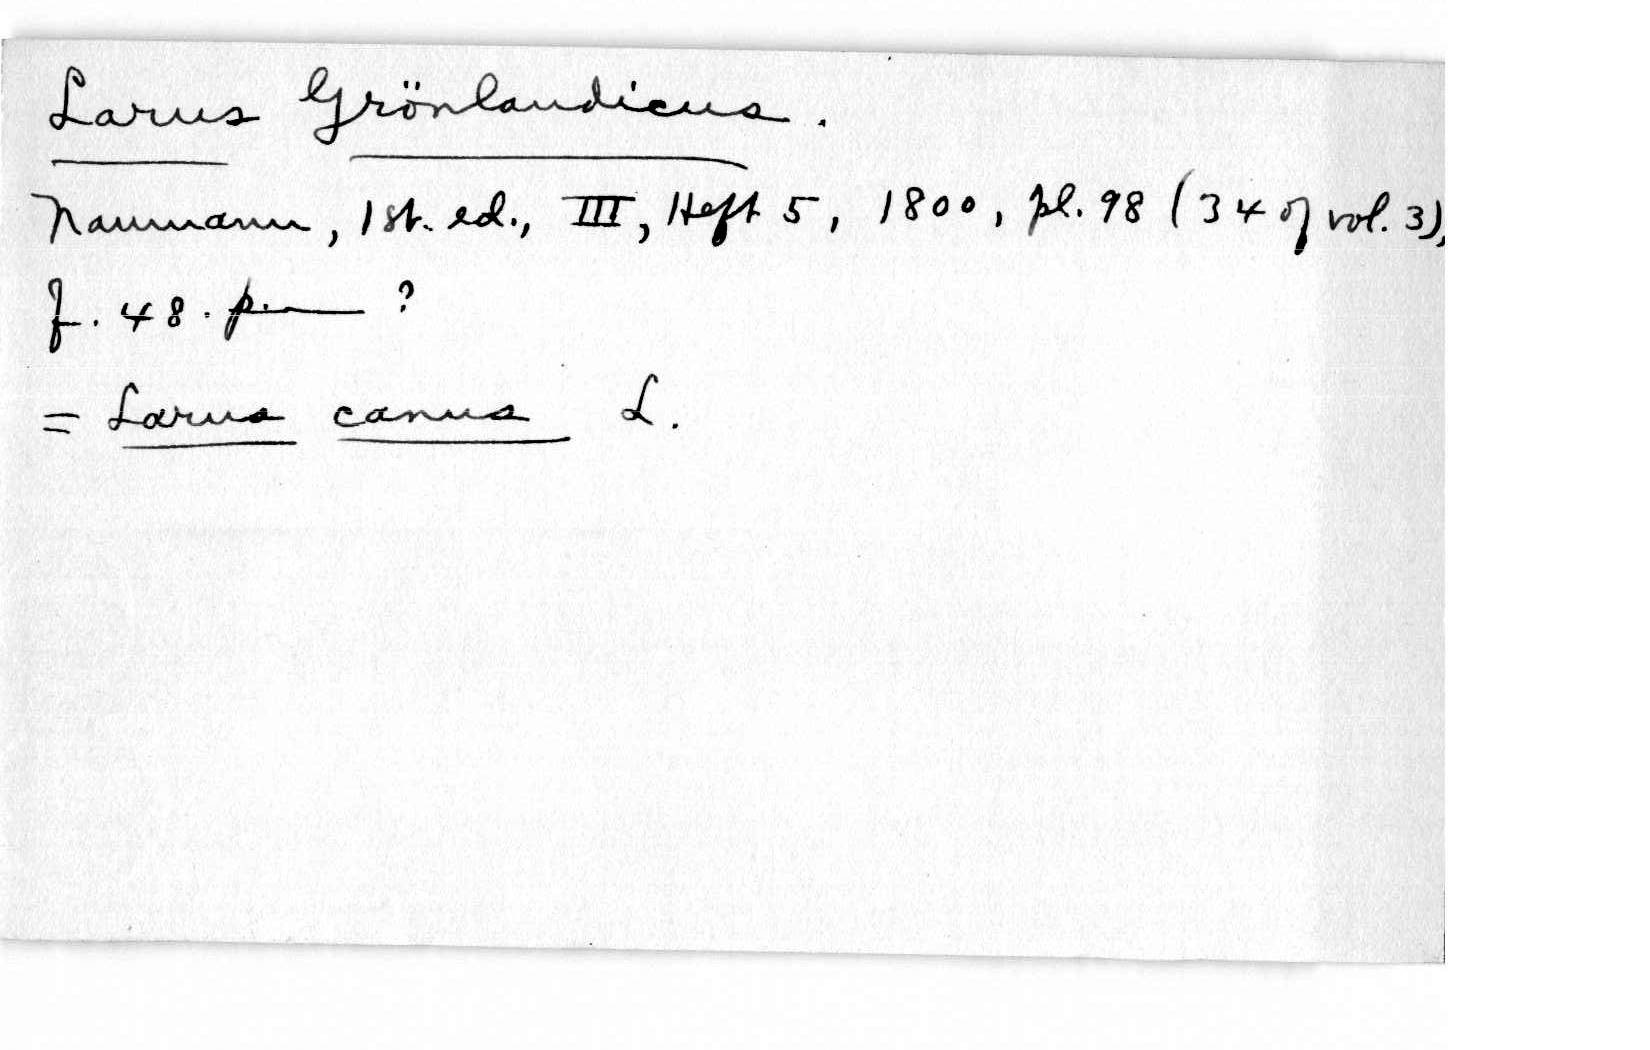 Larus Grönlandicus.
Naumann, 1st. ed., III, Heft 5, 1800, pl. 98 (34 of vol. 3),
f. 48. p.—— ?
= Larus canus L.